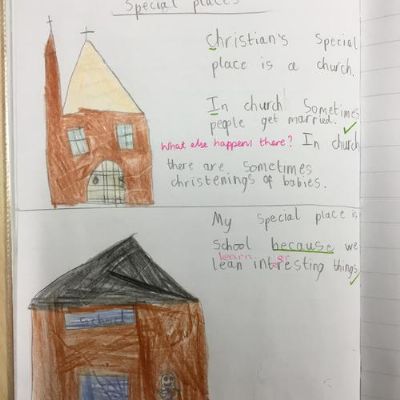 Special places
Christian's Special
place is a church.
In church Sometimes
people get married.
What else happens there? In church
there are sometimes
christenings of babies.
My special place is
school because we
learn er
lean intresting things